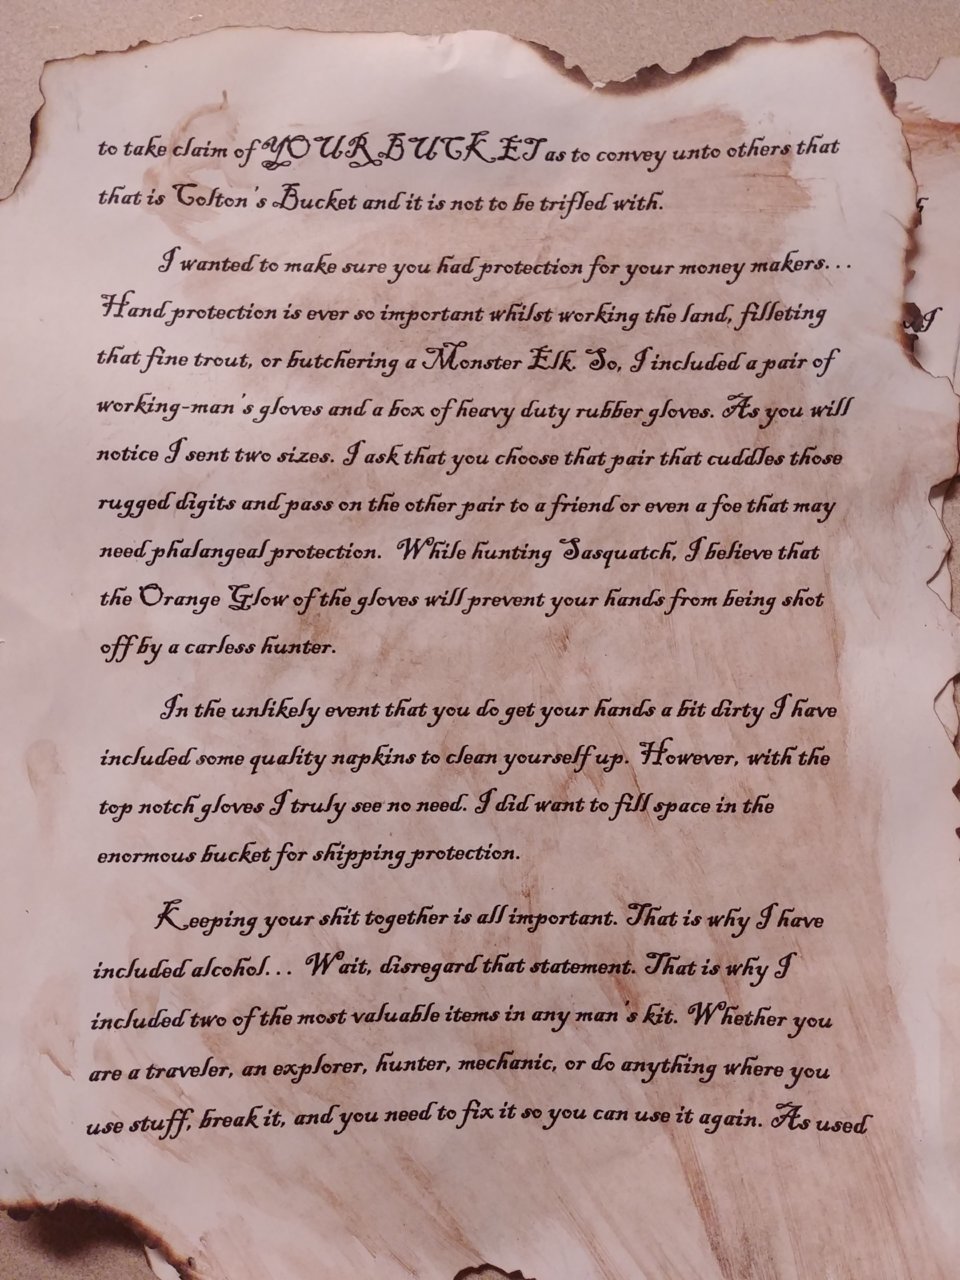 to take claim of YOUR BUCKET as to convey unto others that
that is Colton's Bucket and it is not to be trifled with.
I wanted to make sure you had protection for your money makers...
Hand protection is ever so important whilst working the land, filleting
that fine trout, or butchering a Monster Elk. So, I included a pair of
working-man's gloves and a box of heavy duty rubber gloves. As you will
notice I sent two sizes. I ask that you choose that pair that cuddles those
rugged digits and pass on the other pair to a friend or even a foe that may
need phalangeal protection. While hunting Sasquatch, I believe that
the Orange Glow of the gloves will prevent your hands from being shot
off by a carless hunter.
In the unlikely event that you do get your hands a bit dirty I have
included some quality napkins to clean yourself up. However, with the
top notch gloves I truly see no need. I did want to fill space in the
enormous bucket for shipping protection.
Keeping your shit together is all important. That is why I have
included alcohol... Wait, disregard that statement. That is why I
included two of the most valuable items in any man's kit. Whether you
are a traveler, an explorer, hunter, mechanic, or do anything where you
use stuff, break it, and you need to fix it so you can use it again. As used